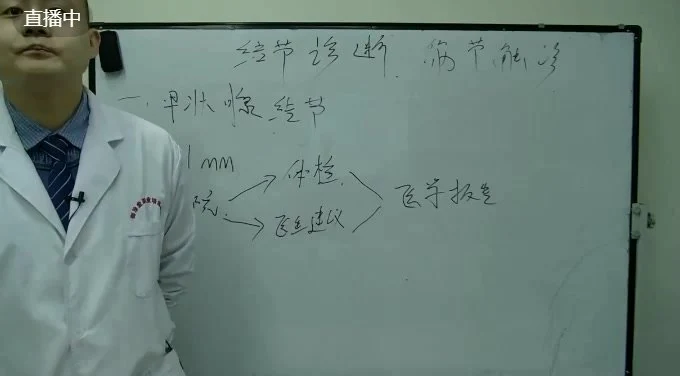 直播中
结节诊断、筋节触诊
一、甲状腺结节
1mm
体检、
院
医学报告
医生建议